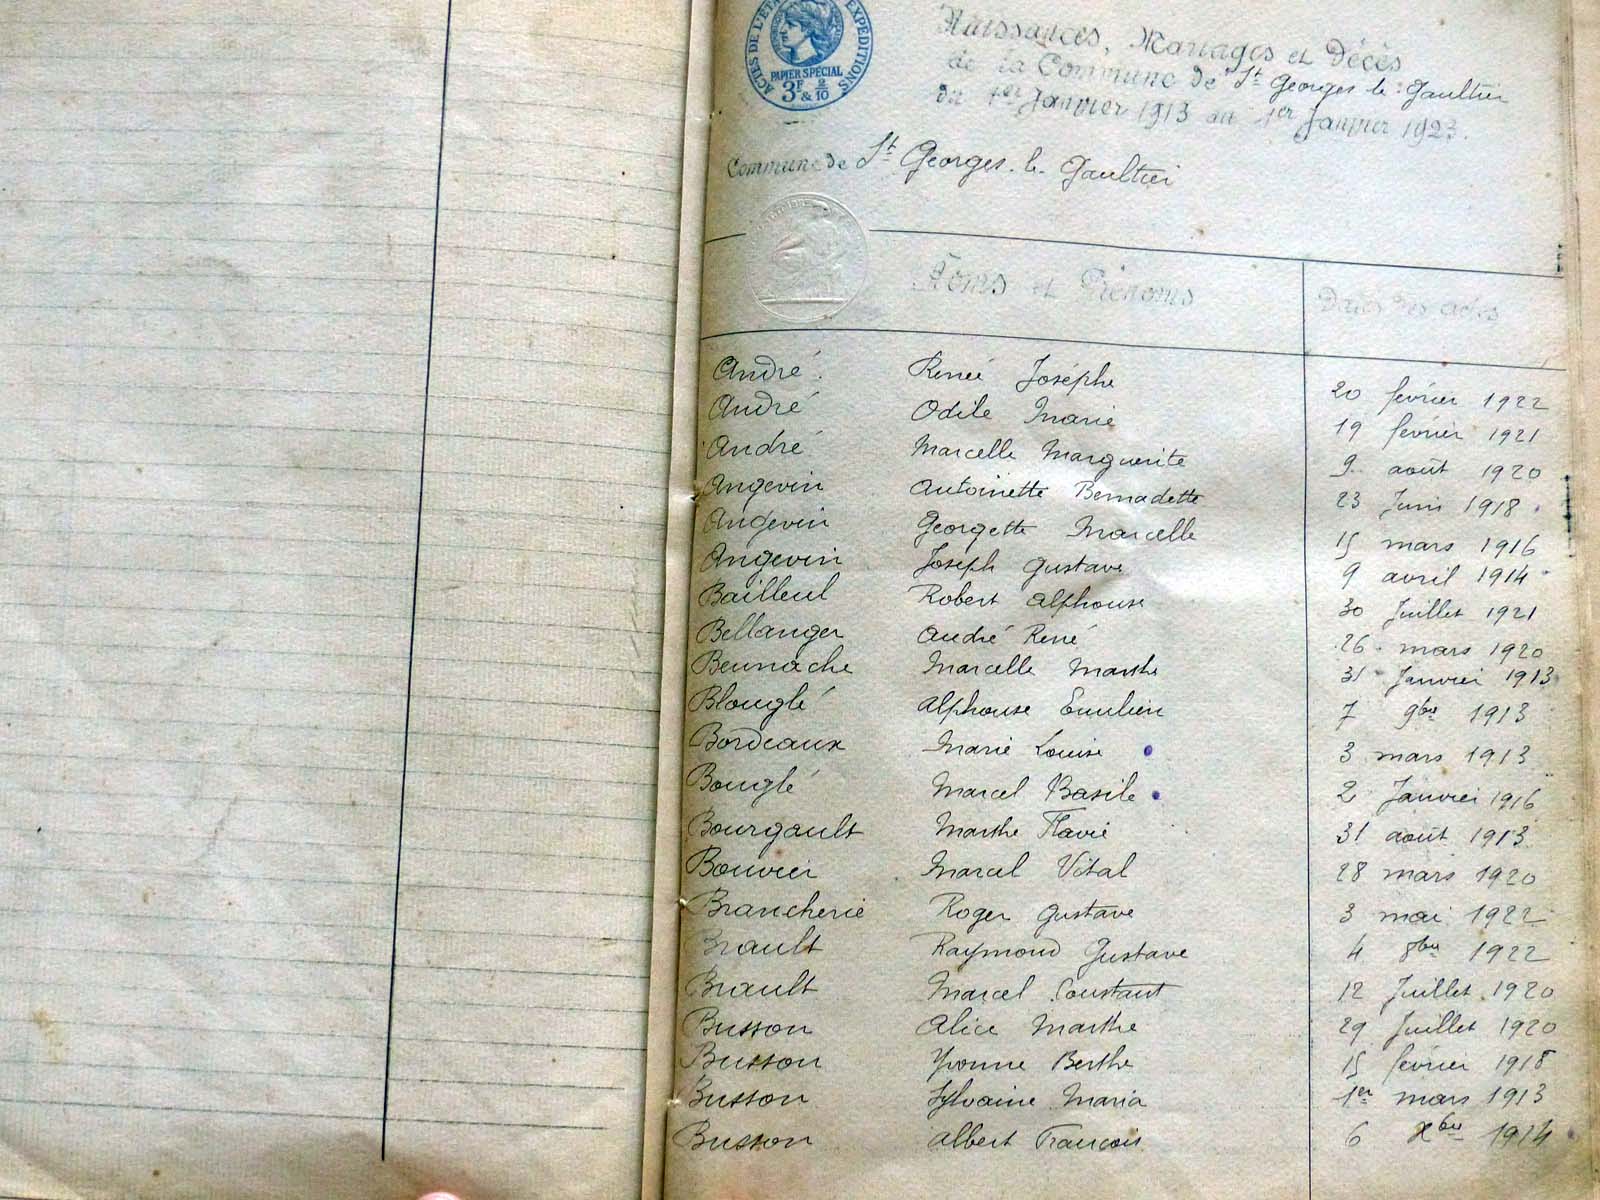 ACTES DE L'ÉTA EXPÉDITIONS
PAPIER SPÉCIAL
3F & 2/10
Naissances, Mariages et Décès
de la Commune de St Georges le Gaultier
du 1er Janvier 1913 au 1er Janvier 1923.
Commune de St Georges-le-Gaultier
Noms et Prénoms Dates des actes
André Renée Josèphe 20 février 1922
André Odile Marie 19 février 1921
André Marcelle Marguerite 9 août 1920
Angevin Antoinette Bernadette 23 Juin 1918
Angevin Georgette Marcelle 15 mars 1916
Angevin Joseph Gustave 9 avril 1914
Bailleul Robert Alphonse 30 Juillet 1921
Bellanger André René 26 mars 1920
Beunache Marcelle Marthe 31 Janvier 1913
Blouglé Alphonse Emilien 7 9bre 1913
Bordeaux Marie Louise 3 mars 1913
Bouglé Marcel Basile 2 Janvier 1916
Bourgault Marthe Flavie 31 août 1913
Bouvier Marcel Vital 28 mars 1920
Brancherie Roger Gustave 3 mai 1922
Brault Raymond Gustave 4 8bre 1922
Brault Marcel Constant 12 Juillet 1920
Busson Alice Marthe 29 Juillet 1920
Busson Yvonne Berthe 15 février 1918
Busson Sylvaine Maria 1er mars 1913
Busson Albert François 6 Xbre 1914